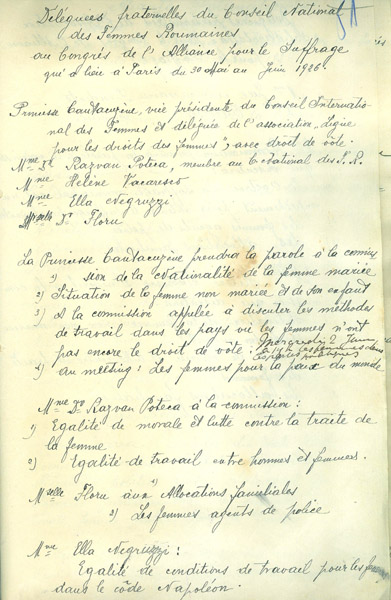 Déléguées fraternelles du Conseil National
des Femmes Roumaines
au Congrès de l'Alliance pour le Suffrage
qui a lieu à Paris du 30 Mai au Juin 1926.
Princesse Cantacuzène, vice présidente du Conseil Internatio-
nal des Femmes et déléguée de l'association „Ligue
pour les droits des femmes" avec droit de vote.
Mme Dr Razvan Poteca, membre au C National des F. R.
Mme Hélène Vacaresco
Mme Ella Negruzzi
Melle Dr Floru
La Princesse Cantacuzène prendra la parole à la commis
1) sion de la Nationalité de la femme mariée
2) Situation de la femme non mariée et de son enfant
3) A la commission appelée à discuter les méthodes
de travail dans les pays où les femmes n'ont
pas encore le droit de vote. Mercredi 2 Juin
les femmes dans
4) au meeting: Les femmes pour la paix du monde
Mme Dr Razvan Poteca à la commission:
1) Egalité de morale et lutte contre la traite de
la femme
2) Egalité de travail entre hommes et femmes.
Mselle Floru aux 1) Allocations familiales
2) Les femmes agents de police
Mme Ella Negruzzi:
Egalité de conditions de travail pour les fem
dans le côde Napoléon.